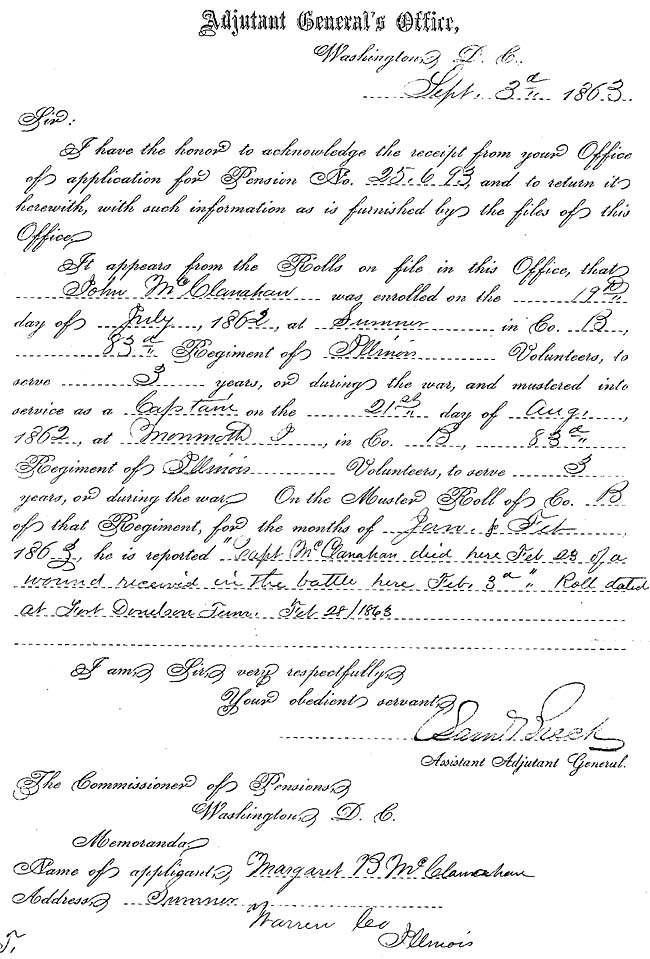 Adjutant General's Office,
Washington, D. C.
Sept. 3d 1863.
Sir:
I have the honor to acknowledge the receipt from your Office
of application for Pension No. 25.693, and to return it
herewith, with such information as is furnished by the files of this
Office.
It appears from the Rolls on file in this Office, that
John McClanahan was enrolled on the 19th
day of July, 1862, at Sumner in Co. B,
83d Regiment of Illinois Volunteers, to
serve 3 years, or during the war, and mustered into
service as a Captain on the 21st day of Aug.,
1862, at Monmoth I, in Co. B, 83d
Regiment of Illinois Volunteers, to serve 3
years, or during the war. On the Muster Roll of Co. B
of that Regiment, for the months of Jan. & Feb
1863, he is reported "Capt McClanahan died here Feb 23 of a
wound received in the battle here Feb. 3d" Roll dated
at Fort Donelson Tenn. Feb 28/1863
I am, Sir, very respectfully,
Your obedient servant,
Saml Breck
Assistant Adjutant General.
The Commissioner of Pensions,
Washington, D. C.
Memoranda,
Name of applicant, Margaret B McClanahan
Address, Sumner
Warren Co
Illinois